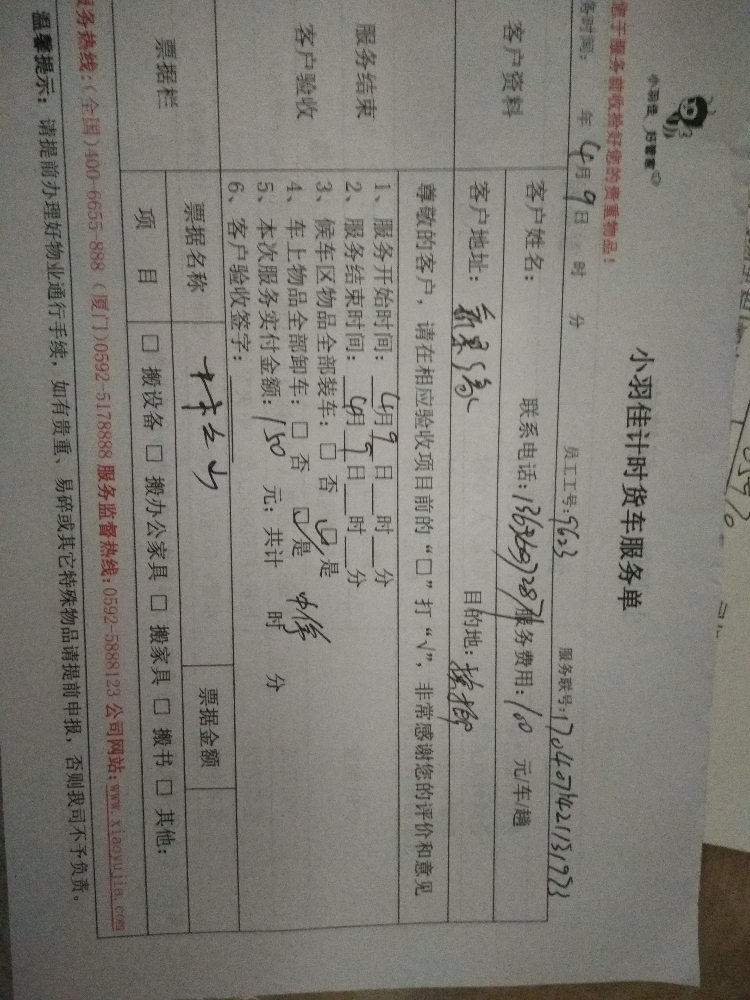 小羽佳 好管家
小羽佳计时货车服务单
您于服务前收捡好您的贵重物品！
务时间： 年 4月 9日 时 分 员工工号：9623 服务联号：
客户资料
客户姓名： 联系电话： 服务费用：100 元/车/趟
客户地址： 目的地：
尊敬的客户，请在相应验收项目前的“□”打“√”，非常感谢您的评价和意见
服务结束
客户验收
1、服务开始时间：4月9日__时__分
2、服务结束时间：4月9日__时__分
3、候车区物品全部装车：□ 否 ☑是
4、车上物品全部卸车：□ 否 ☑是
5、本次服务实付金额：150 元；共计 时 分
6、客户验收签字：
票据栏
票据名称 票据金额
项 目 □ 搬设备 □ 搬办公家具 □ 搬家具 □ 搬书 □ 其他：
服务热线：(全国)400-6655-888 (厦门)0592-5178888 服务监督热线：0592-5888123 公司网站：www.xiaoyujia.com
温馨提示：请提前办理好物业通行手续，如有贵重、易碎或其它特殊物品请提前申报，否则我司不予负责。